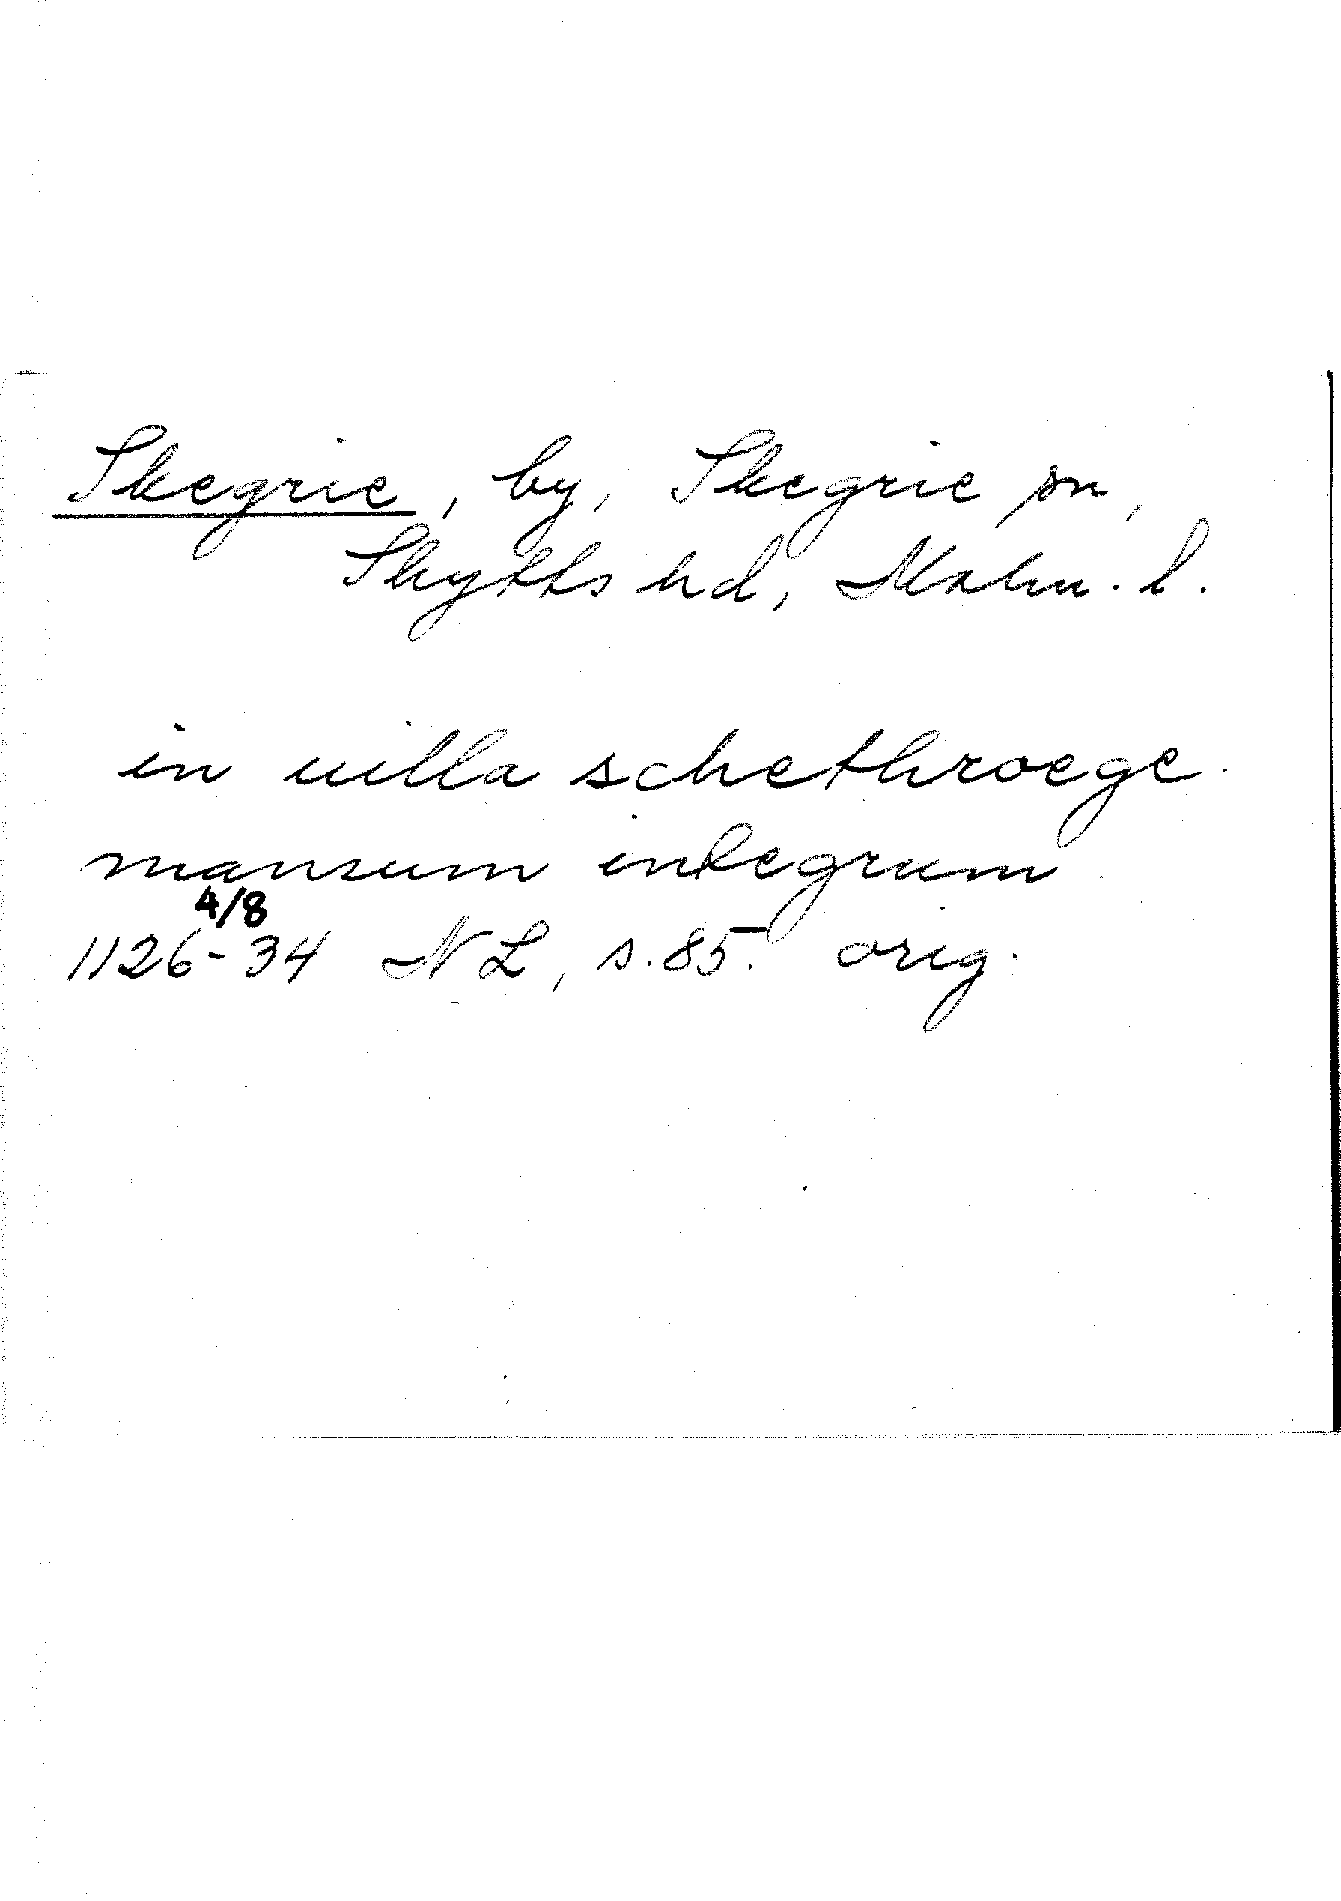 Skegrie, by, Skegrie sn,
Skytts hd, Malm. l.
in uilla schethroege
mansum integrum
4/8
1126-34 NL, s. 85. orig.